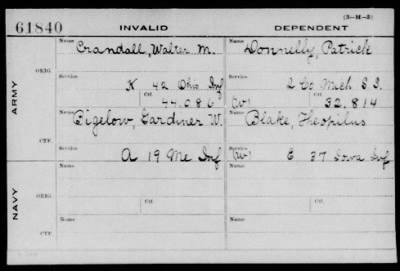 (3-M-3)
61840 INVALID DEPENDENT
Name Crandall, Walter M. Name Donnelly, Patrick
ORIG.
Service K 42 Ohio Inf Service 2 Co Mich S S.
Ctf. 44.086 (W) Ctf. 32.814
ARMY
Name Bigelow, Gardiner W. Name Blake, Theopilus
CTF.
Service A 19 Me Inf Service (W) E 37 Iowa Inf
Name Name
ORIG.
Service Ctf. Service Ctf.
NAVY
Name Name
CTF.
Service Service